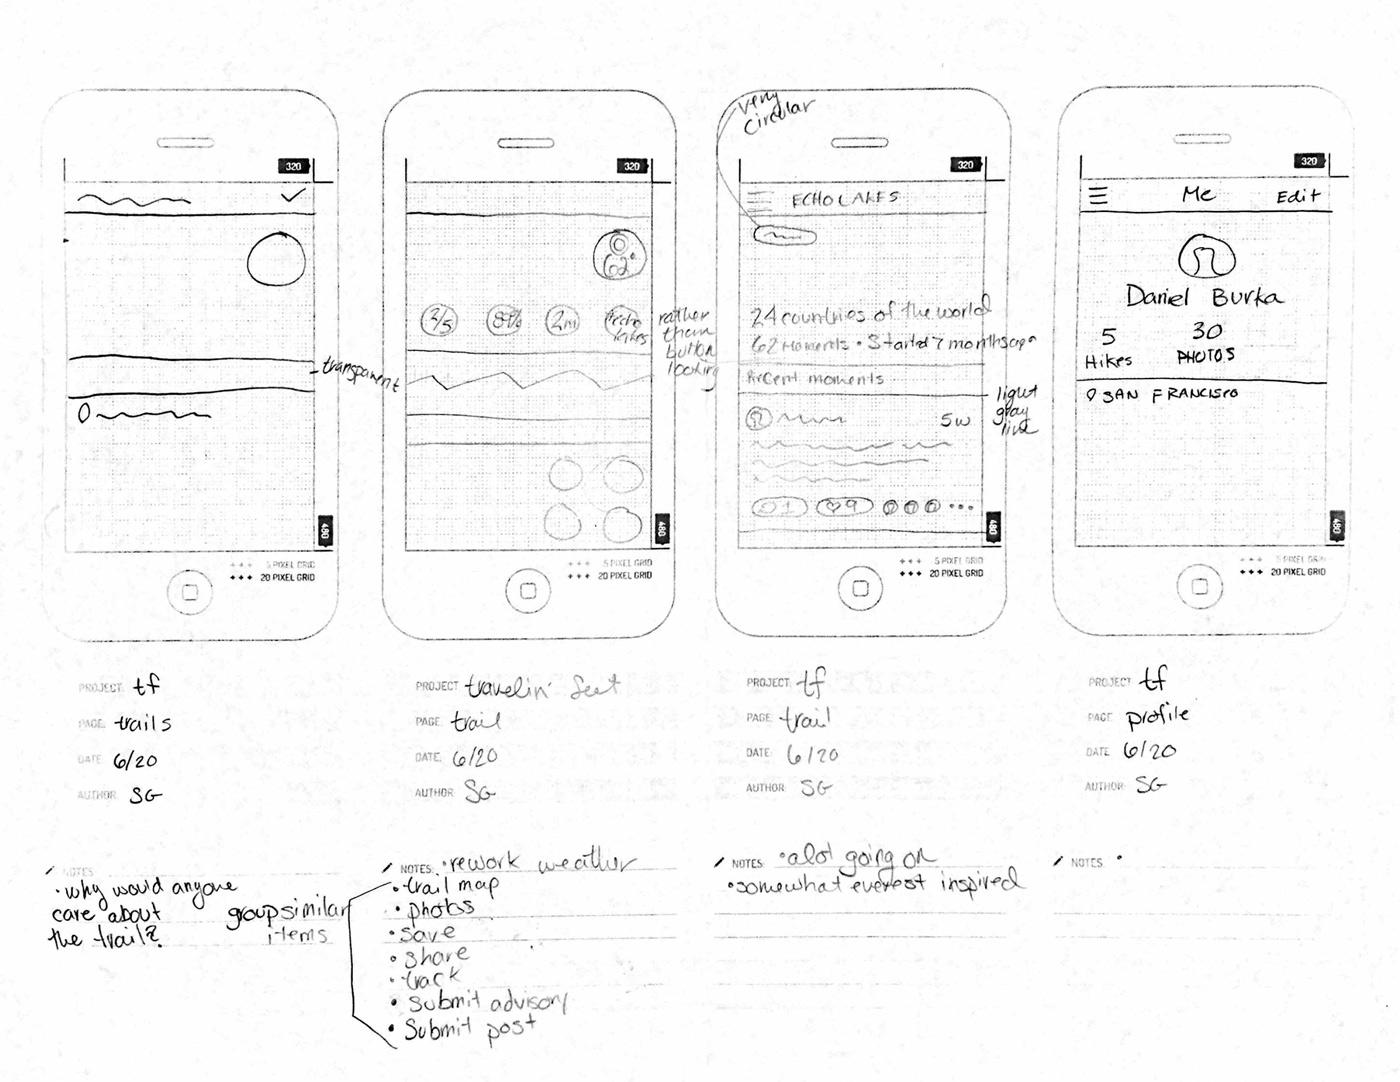 320
transparent
480
5 PIXEL GRID
20 PIXEL GRID
PROJECT: tf
PAGE: trails
DATE: 6/20
AUTHOR: SG
NOTES:
• why would anyone
care about
the trail?
group similar
items
320
62°
3/5
2mi
rather
than
button
looking
480
5 PIXEL GRID
20 PIXEL GRID
PROJECT: travelin' feet
PAGE: trail
DATE: 6/20
AUTHOR: SG
NOTES: • rework weather
• trail map
• photos
• save
• share
• track
• Submit advisory
• Submit post
very
circular
320
ECHO LAKES
24 countries of the world
62 Moments • Started 7 months ago
Recent moments
light
gray
line
5w
1
9
480
5 PIXEL GRID
20 PIXEL GRID
PROJECT: tf
PAGE: trail
DATE: 6/20
AUTHOR: SG
NOTES: • alot going on
• somewhat everest inspired
320
Me
Edit
Daniel Burka
5
Hikes
30
PHOTOS
SAN FRANCISCO
480
5 PIXEL GRID
20 PIXEL GRID
PROJECT: tf
PAGE: profile
DATE: 6/20
AUTHOR: SG
NOTES: •